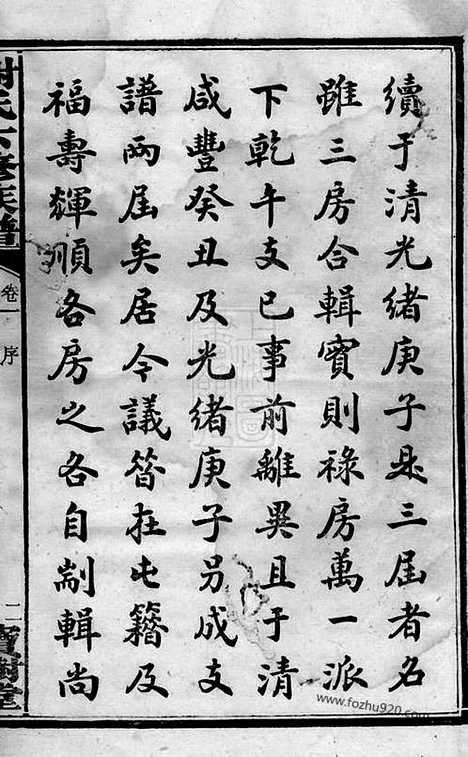 續于清光緒庚子是三屆者名
雖三房合輯實則祿房萬一派
下乾午支已事前離異且于清
咸豐癸丑及光緒庚子另成支
譜兩屆矣居今議脩在屯籍及
福壽輝順各房之各自剬輯尚
謝氏六修族譜
卷一
序
二
寶樹堂
www.fozhu920.com